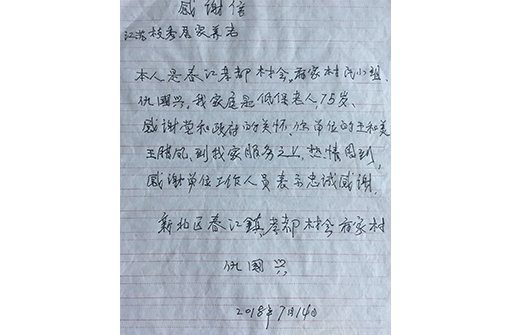 感谢信
江苏 校秀居家养老
本人是春江孝都村会,蒋家村民小组
仇国兴,我家庭是低保老人,75岁、
感谢党和政府的关怀,你单位的王和美
王腊凤、到我家服务之上,热情周到,
感谢单位工作人员表示忠诚感谢.
新北区春江鎮孝都村会蒋家村
仇國兴
2018年7月14日